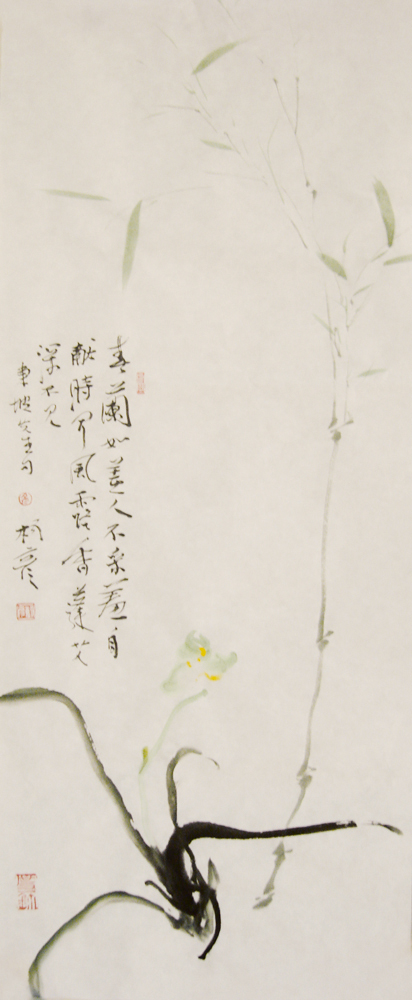 春蘭如美人不采羞自
献時聞風露香蓬艾
深不见
東坡先生句